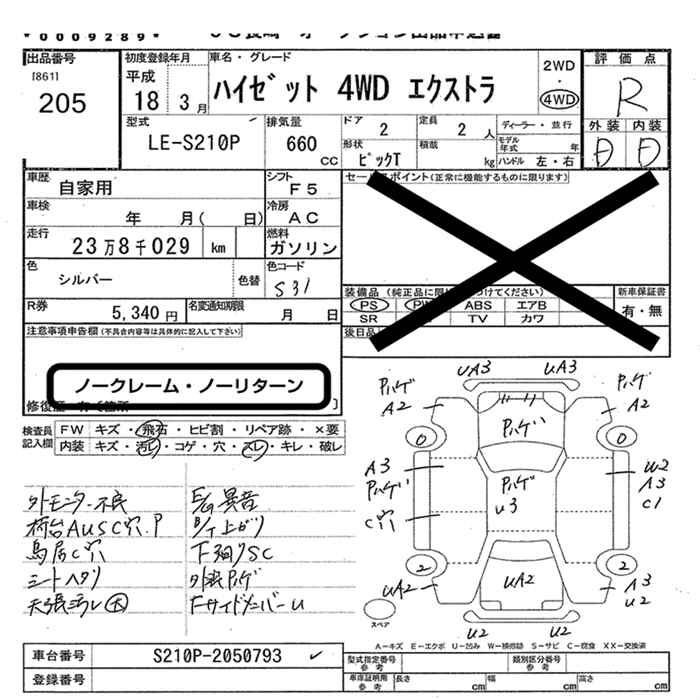 *0009289*
出品番号
[861]
205
初度登録年月
平成
18年3月
車名・グレード
ハイゼット 4WD エクストラ
2WD
・
4WD
評価点
R
外装 内装
D D
型式
LE-S210P
排気量
660 CC
ドア
2
定員
2 人
ディーラー・並行
形状
ピックT
積載
kg
モデル年式 年
ハンドル 左・右
車歴
自家用
シフト
F5
車検
年 月( 日)
冷房
AC
走行
23万8千029 km
燃料
ガソリン
色
シルバー
色替
色コード
S31
R券
5,340 円
名変通知期限
月 日
セールスポイント(正常に機能するものに限ります)
装備品
PS PW ABS エアB
SR TV カワ
新車保証書
有・無
後日品
注意事項申告欄(不具合内容等は具体的に記入して下さい)
ノークレーム・ノーリターン
検査員記入欄
FW キズ・飛石・ヒビ割・リペア跡・×要
内装 キズ・汚レ・コゲ・穴・スレ・キレ・破レ
外モニター不良
荷台AUSC穴.P
鳥居C穴
シートヘタリ
天張汚レ大
E/G異音
B/T上ガリ
下廻りSC
外装ハゲ
FサイドメンバーU
UA3 UA3
ハゲ A2
ハゲ A2
ハゲ
0 0
A3
ハゲ
C穴
ハゲ
U3
U2
A3
C1
2 2
UA2
UA2
A3
U2
U2 U2
スペア
A－キズ E－エクボ U－凹み W－補修跡 S－サビ C－腐食 XX－交換済
車台番号
S210P-2050793
登録番号
型式指定番号 参考
類別区分番号 参考
車庫証明用 参考
長さ cm
幅 cm
高さ cm